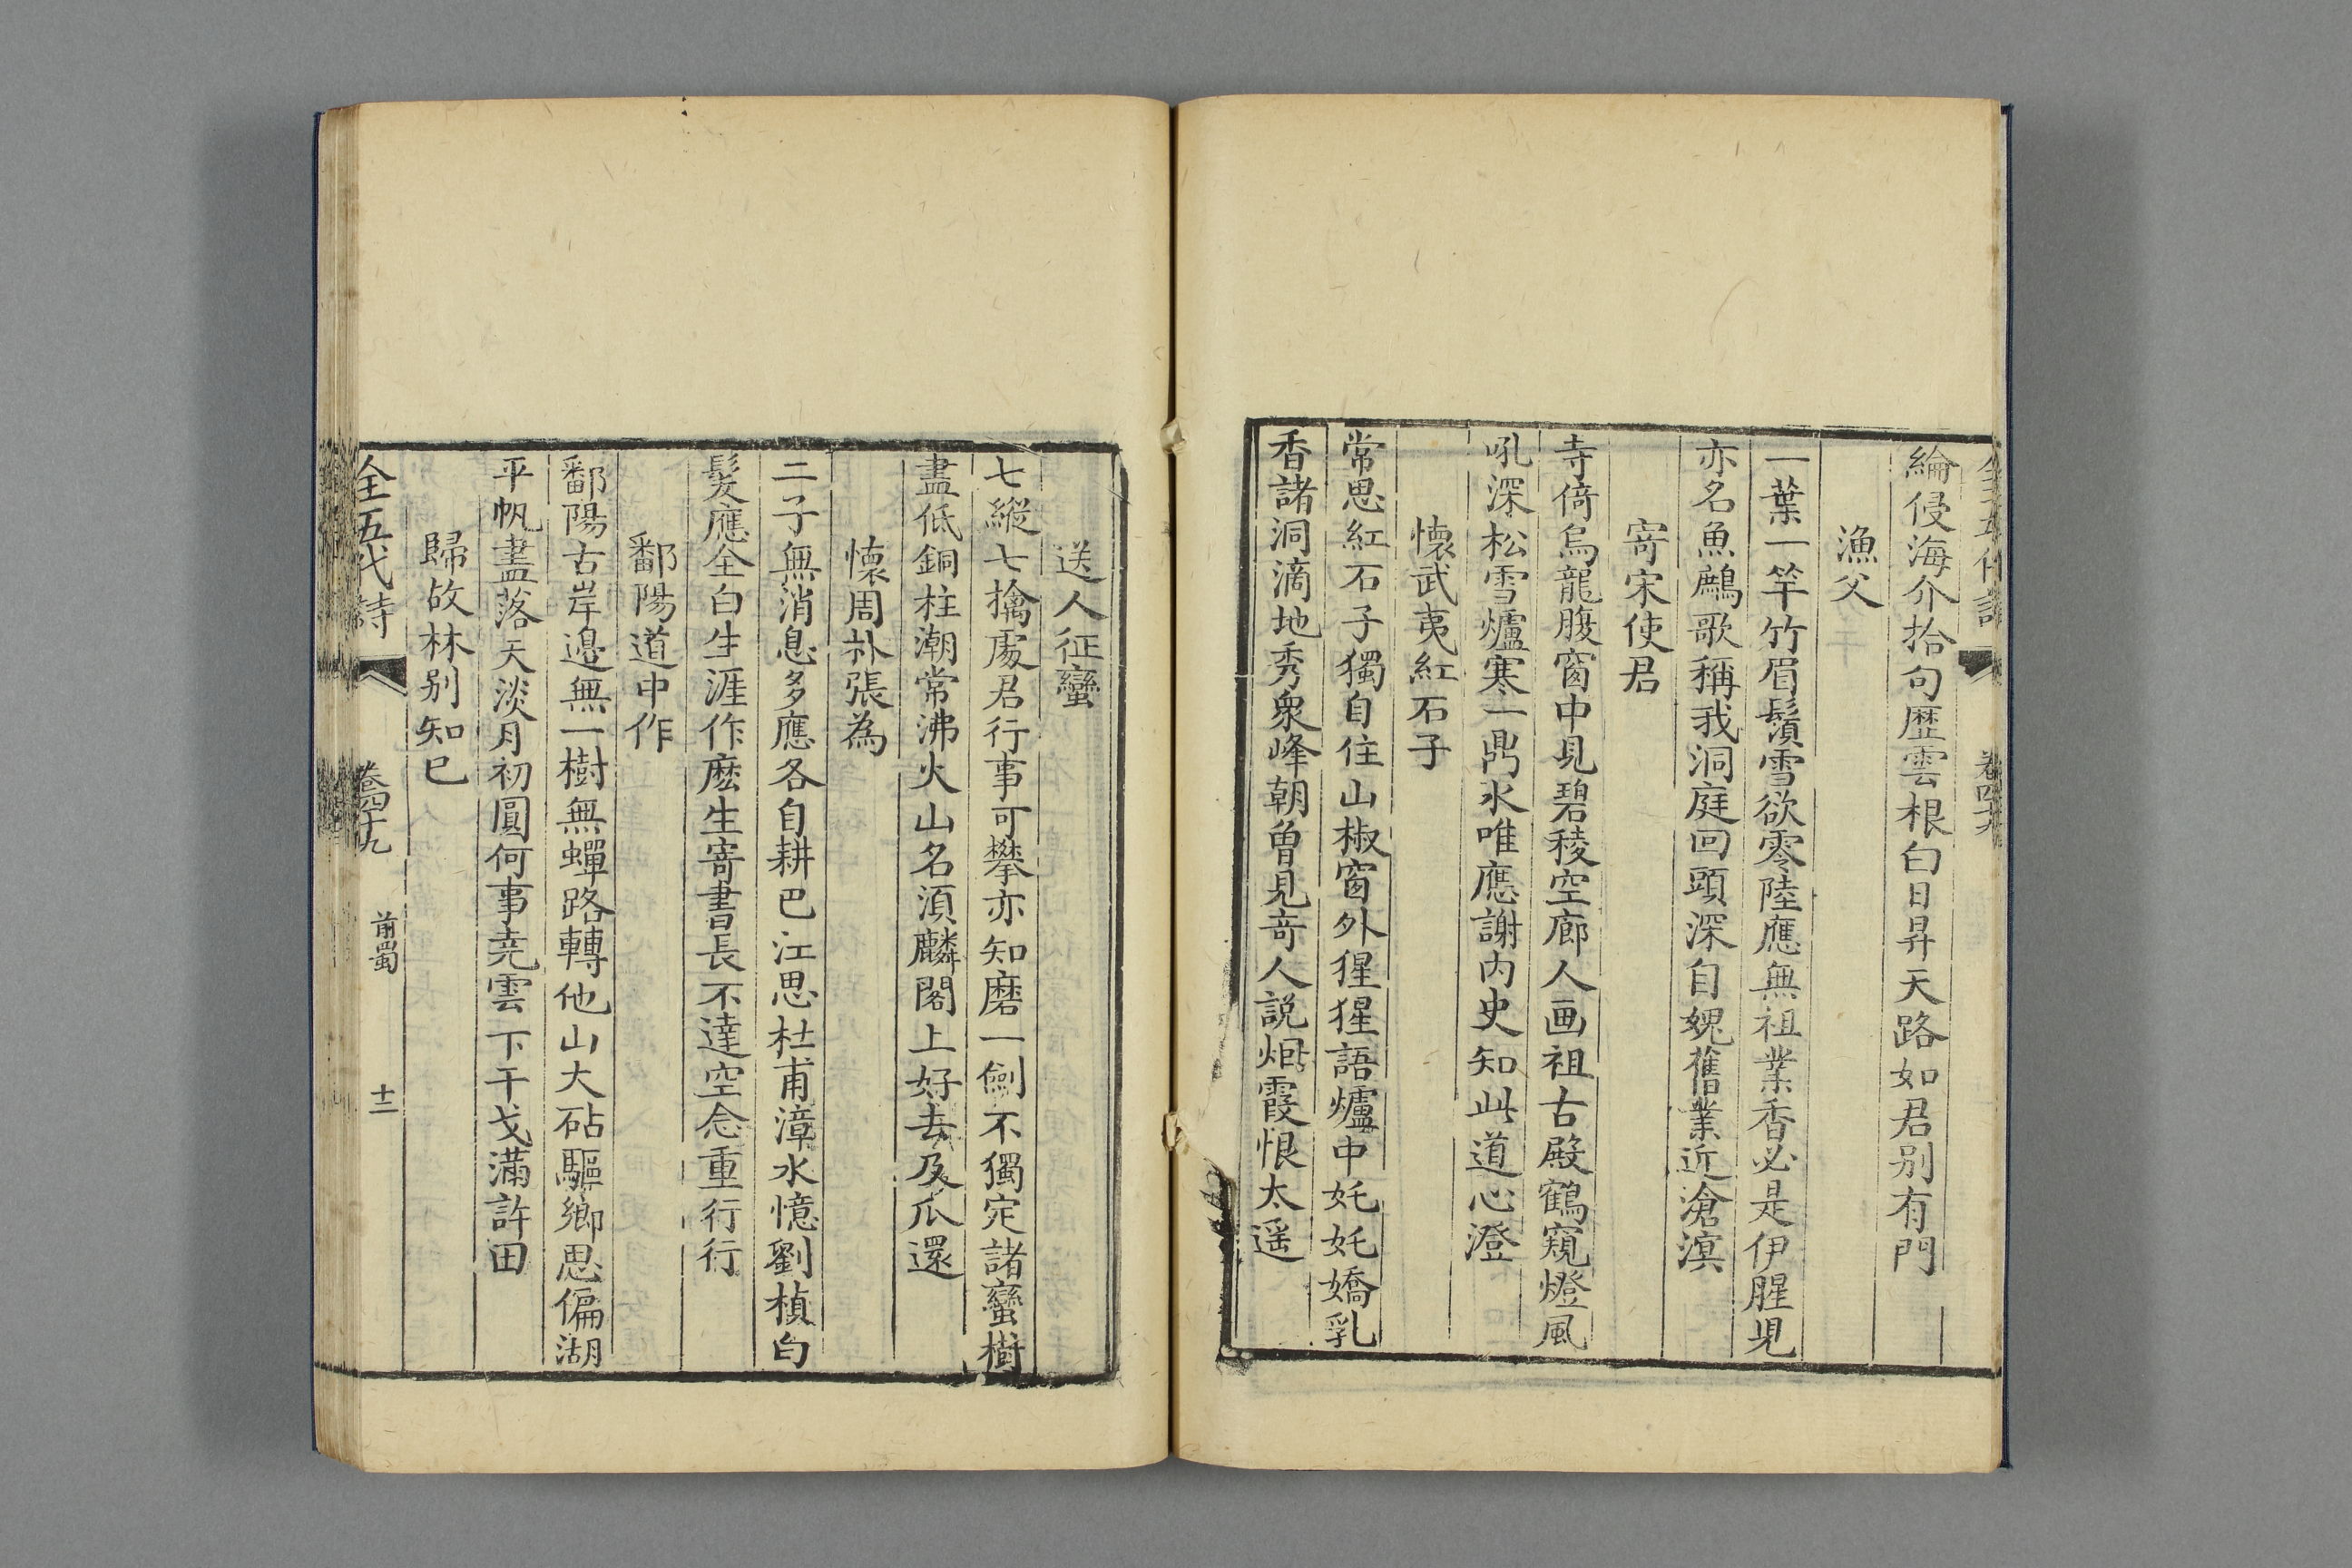 綸侵海介拾句歷雲根白日昇天路如君別有門
漁父
一葉一竿竹眉鬚雪欲零陸應無祖業香必是伊腥児
亦名魚鷉歌稱我洞庭回頭深自媿舊業近滄溟
寄宋使君
寺倚烏龍腹窗中見碧稜空廊人画祖古殿鶴窺燈風
吼深松雪爐寒一鼎氷唯應謝內史知此道心澄
懐武夷紅石子
常思紅石子獨自住山椒窗外猩猩語爐中奼奼嬌乳
香諸洞滴地秀衆峰朝曽見竒人説烟霞恨太遥
送人征蠻
七縱七擒處君行事可攀亦知磨一劍不獨定諸蠻樹
盡低銅柱潮常沸火山名湏麟閣上好去及爪還
懐周朴張為
二子無消息多應各自耕巴江思杜甫漳水憶劉楨白
髪應全白生涯作麽生寄書長不達空念重行行
鄱陽道中作
鄱陽古岸邉無一樹無蟬路轉他山大砧驅鄉思偏湖
平帆盡落天淡月初圓何事尭雲下干戈滿許田
歸故林别知已
全五代詩 卷四十九 前蜀 十二